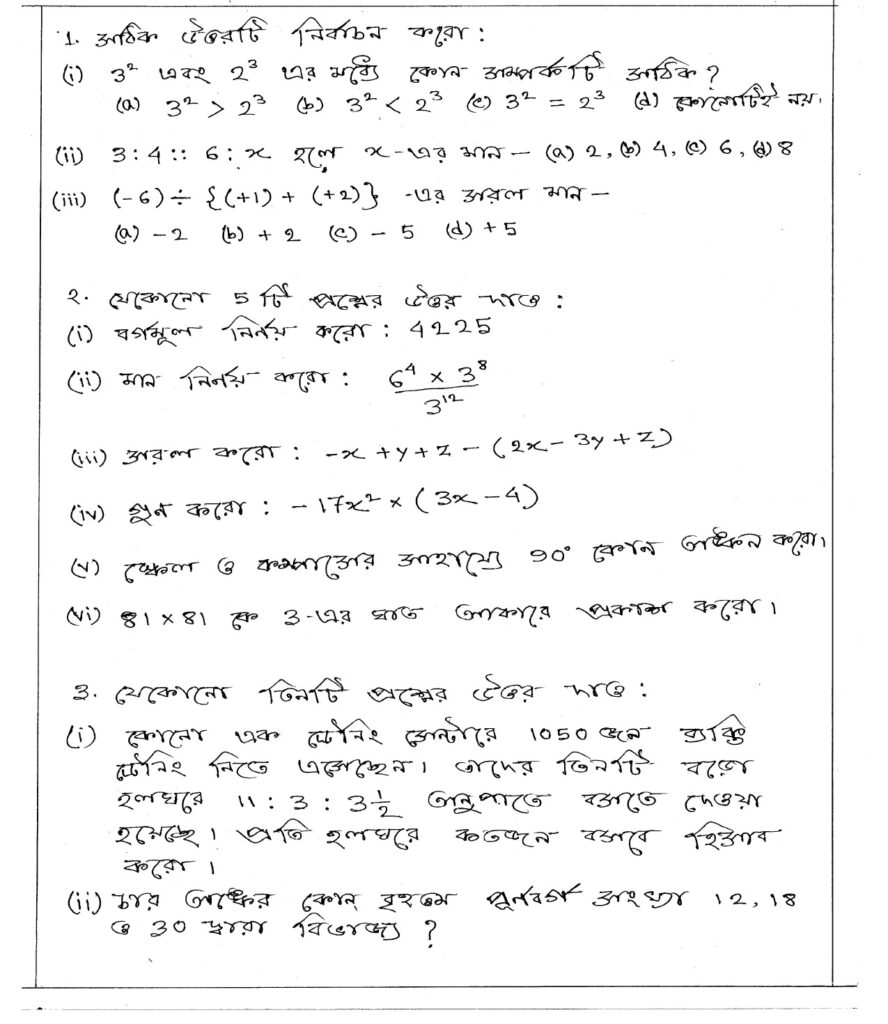 1. সঠিক উত্তরটি নির্বাচন করো :
(i) 3² এবং 2³ এর মধ্যে কোন সম্পর্কটি সঠিক ?
(a) 3² > 2³ (b) 3² < 2³ (c) 3² = 2³ (d) কোনোটিই নয়।
(ii) 3 : 4 :: 6 : x হলে x-এর মান – (a) 2, (b) 4, (c) 6, (d) 8
(iii) (-6) ÷ {(+1) + (+2)} -এর সরল মান –
(a) – 2 (b) + 2 (c) – 5 (d) + 5
২. যেকোনো 5 টি প্রশ্নের উত্তর দাও :
(i) বর্গমূল নির্ণয় করো : 4225
(ii) মান নির্ণয় করো : (6⁴ × 3⁸)/3¹²
(iii) সরল করো : -x + y + z – (2x – 3y + z)
(iv) গুন করো : – 17x² × (3x – 4)
(v) স্কেল ও কম্পাসের সাহায্যে 90° কোন অঙ্কন করো।
(vi) 81 × 81 কে 3-এর ঘাত আকারে প্রকাশ করো।
3. যেকোনো তিনটি প্রশ্নের উত্তর দাও :
(i) কোনো এক ট্রেনিং সেন্টারে 1050 জন ব্যক্তি
ট্রেনিং নিতে এসেছেন। তাদের তিনটি বড়ো
হলঘরে 11 : 3 : 3½ অনুপাতে বসতে দেওয়া
হয়েছে। প্রতি হলঘরে কতজন বসবে হিসাব
করো।
(ii) চার অঙ্কের কোন্ বৃহত্তম পূর্নবর্গ সংখ্যা 12, 18
ও 30 দ্বারা বিভাজ্য ?